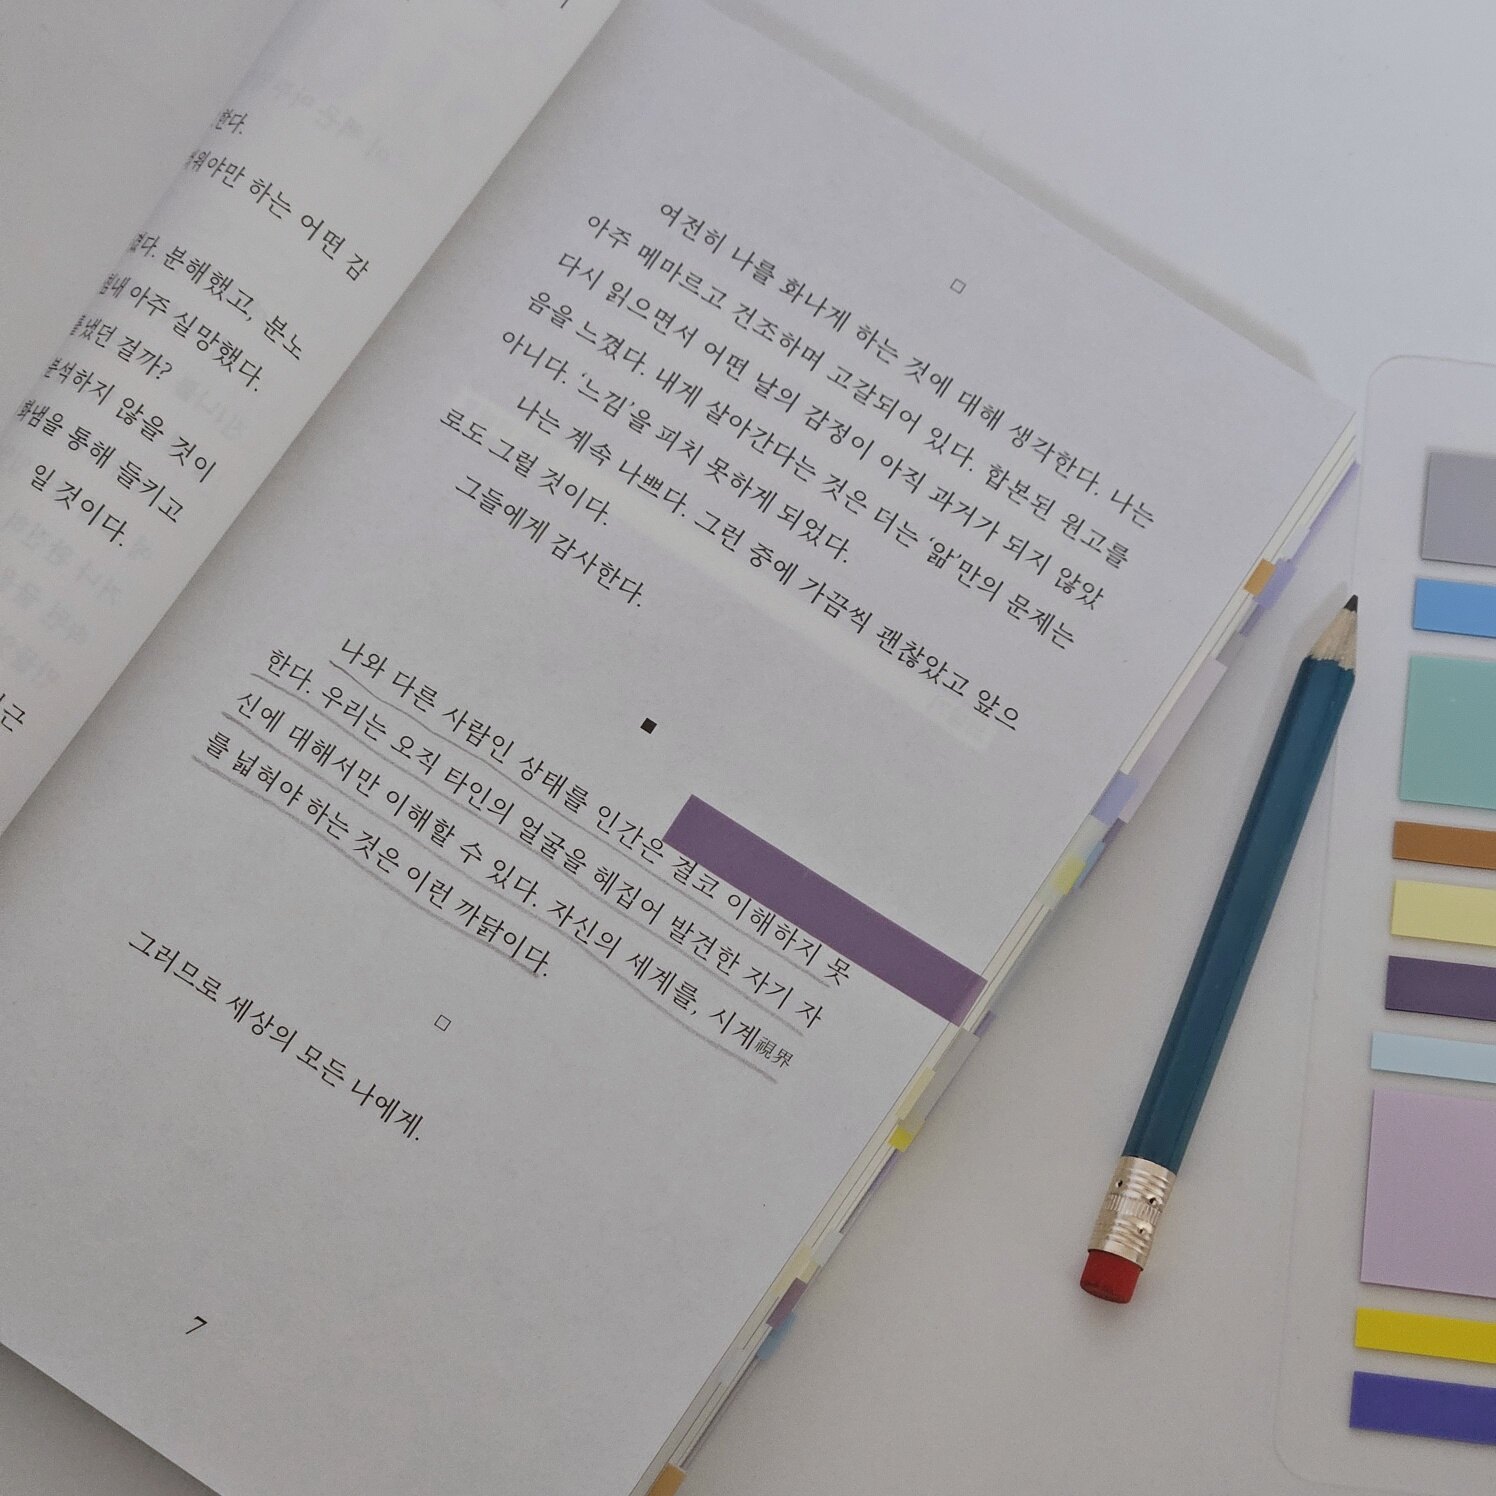 한다.
워야만 하는 어떤 감
다. 분해했고, 분노
내 아주 실망했다.
냈던 걸까?
분석하지 않을 것이
화냄을 통해 들키고
일 것이다.
근
□
여전히 나를 화나게 하는 것에 대해 생각한다. 나는
아주 메마르고 건조하며 고갈되어 있다. 합본된 원고를
다시 읽으면서 어떤 날의 감정이 아직 과거가 되지 않았
음을 느꼈다. 내게 살아간다는 것은 더는 ‘앎’만의 문제는
아니다. ‘느낌’을 피치 못하게 되었다.
나는 계속 나쁘다. 그런 중에 가끔씩 괜찮았고 앞으
로도 그럴 것이다.
그들에게 감사한다.
■
나와 다른 사람인 상태를 인간은 결코 이해하지 못
한다. 우리는 오직 타인의 얼굴을 헤집어 발견한 자기 자
신에 대해서만 이해할 수 있다. 자신의 세계를, 시계視界
를 넓혀야 하는 것은 이런 까닭이다.
□
그러므로 세상의 모든 나에게.
7